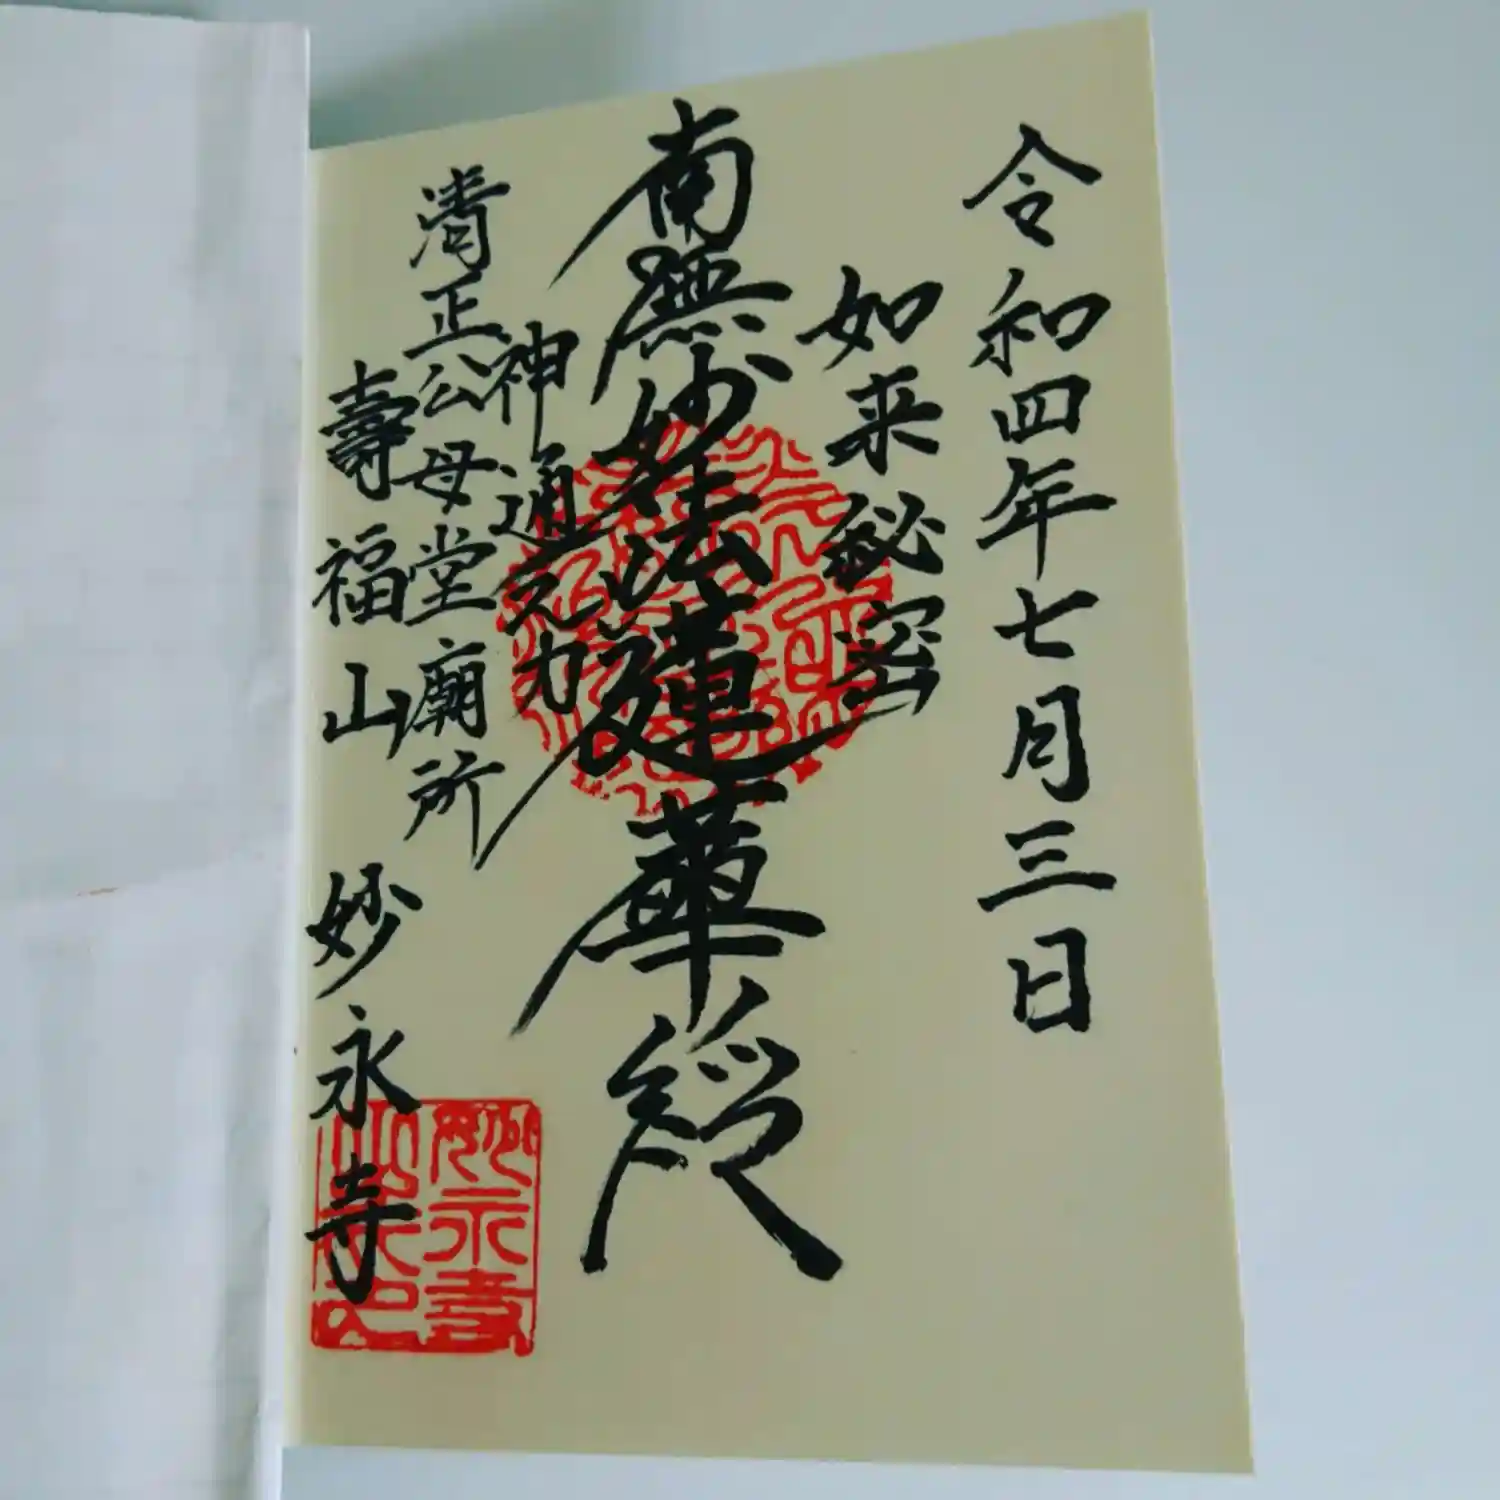 令和四年七月三日
如来秘密
南無妙法蓮華経
神通之力
清正公母堂廟所
壽福山 妙永寺
妙永寺